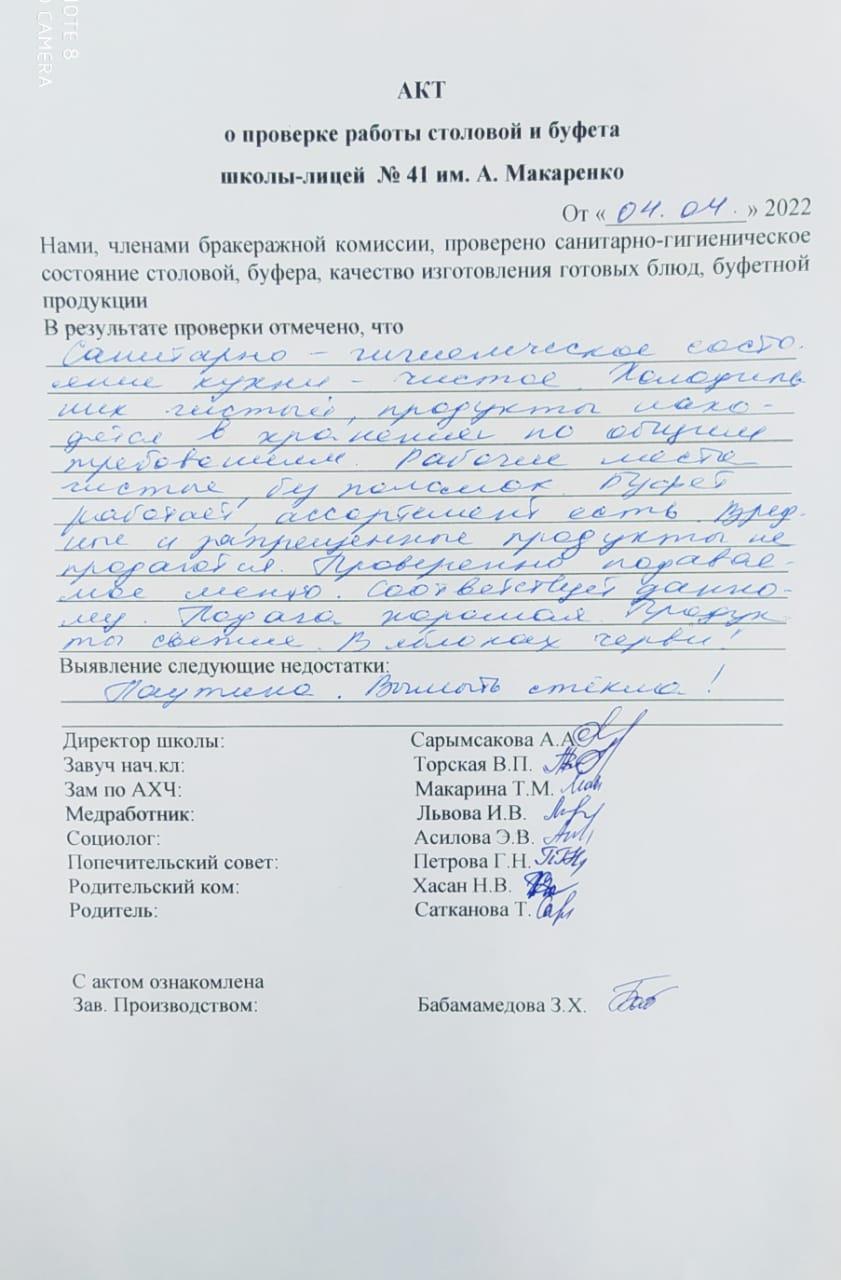 NOTE 8
CAMERA
АКТ
о проверке работы столовой и буфета
школы-лицей № 41 им. А. Макаренко
От « 04. 04. » 2022
Нами, членами бракеражной комиссии, проверено санитарно-гигиеническое
состояние столовой, буфера, качество изготовления готовых блюд, буфетной
продукции
В результате проверки отмечено, что
Санитарно – гигиеническое состо-
яние кухни – чистое. Холодиль
ник чистый, продукты нахо-
дятся в хранении по общим
требованиям. Рабочие места
чистые, без поломок. Буфет
работает, ассортимент есть. Вред-
ные и запрещенные продукты не
продаются. Проверенно подавае-
мое меню. Соответствует данно-
му. Подача хорошая. Продук
ты свежие. В яблоках черви!
Выявление следующие недостатки:
Паутина. Вымыть стёкла!
Директор школы: Сарымсакова А.А
Завуч нач.кл: Торская В.П.
Зам по АХЧ: Макарина Т.М.
Медработник: Львова И.В.
Социолог: Асилова Э.В.
Попечительский совет: Петрова Г.Н.
Родительский ком: Хасан Н.В.
Родитель: Сатканова Т.
С актом ознакомлена
Зав. Производством: Бабамамедова З.Х.